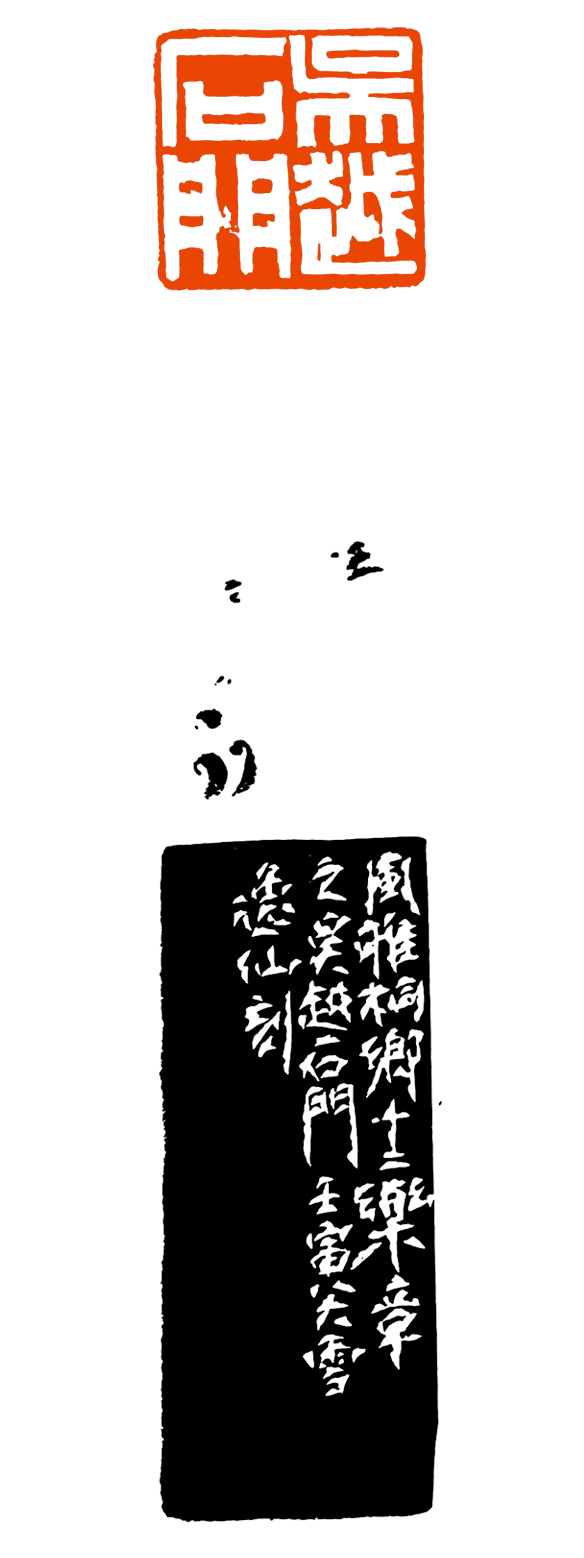 吴越
石門
風雅桐鄉十二樂章
之吴越石門 壬寅大雪
逸仙刻